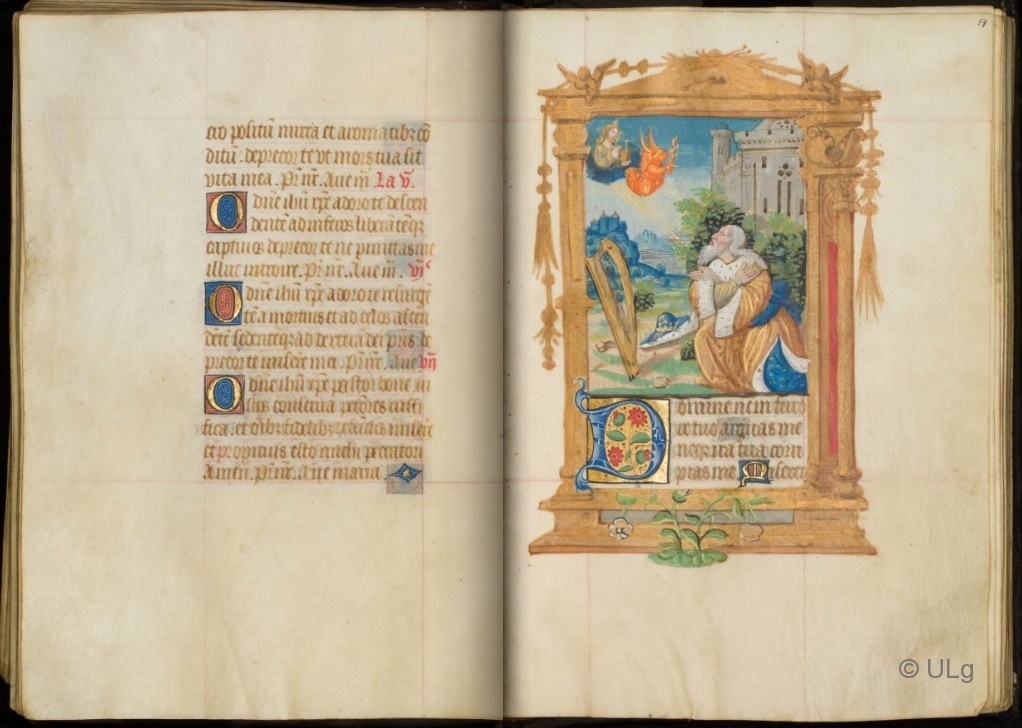 cro positū mirra et aromatibꝫ cō
ditū. deprecor te vt mors tua sit
vita mea. Pr̄ nr̄. Aue m̄. La v̄.
O dn̄e ihū xp̄e adoro te descen
dentē ad inferos liberātēqꝫ
captiuos deprecor te ne permittas me
illuc introire. Pr̄ nr̄. Aue m̄. vjᵉ
O dn̄e ihū xp̄e adoro te resurgē
tē a mortuis et ad celos ascen
dētē sedentēqꝫ ad dexterā dei pr̄is de
precor te miserē mei. Pr̄ nr̄. Aue vij
O dn̄e ihū xp̄e pastor bone iu
stos conserua pctōres iusti
fica. et oībꝫ fidelibꝫ miserē
et propitius esto michi peccatori
Amen. Pr̄ nr̄. Aue maria
57
Domine ne in furo
re tuo arguas me
neqꝫ in ira tua corri
pias me Miserere
© ULg